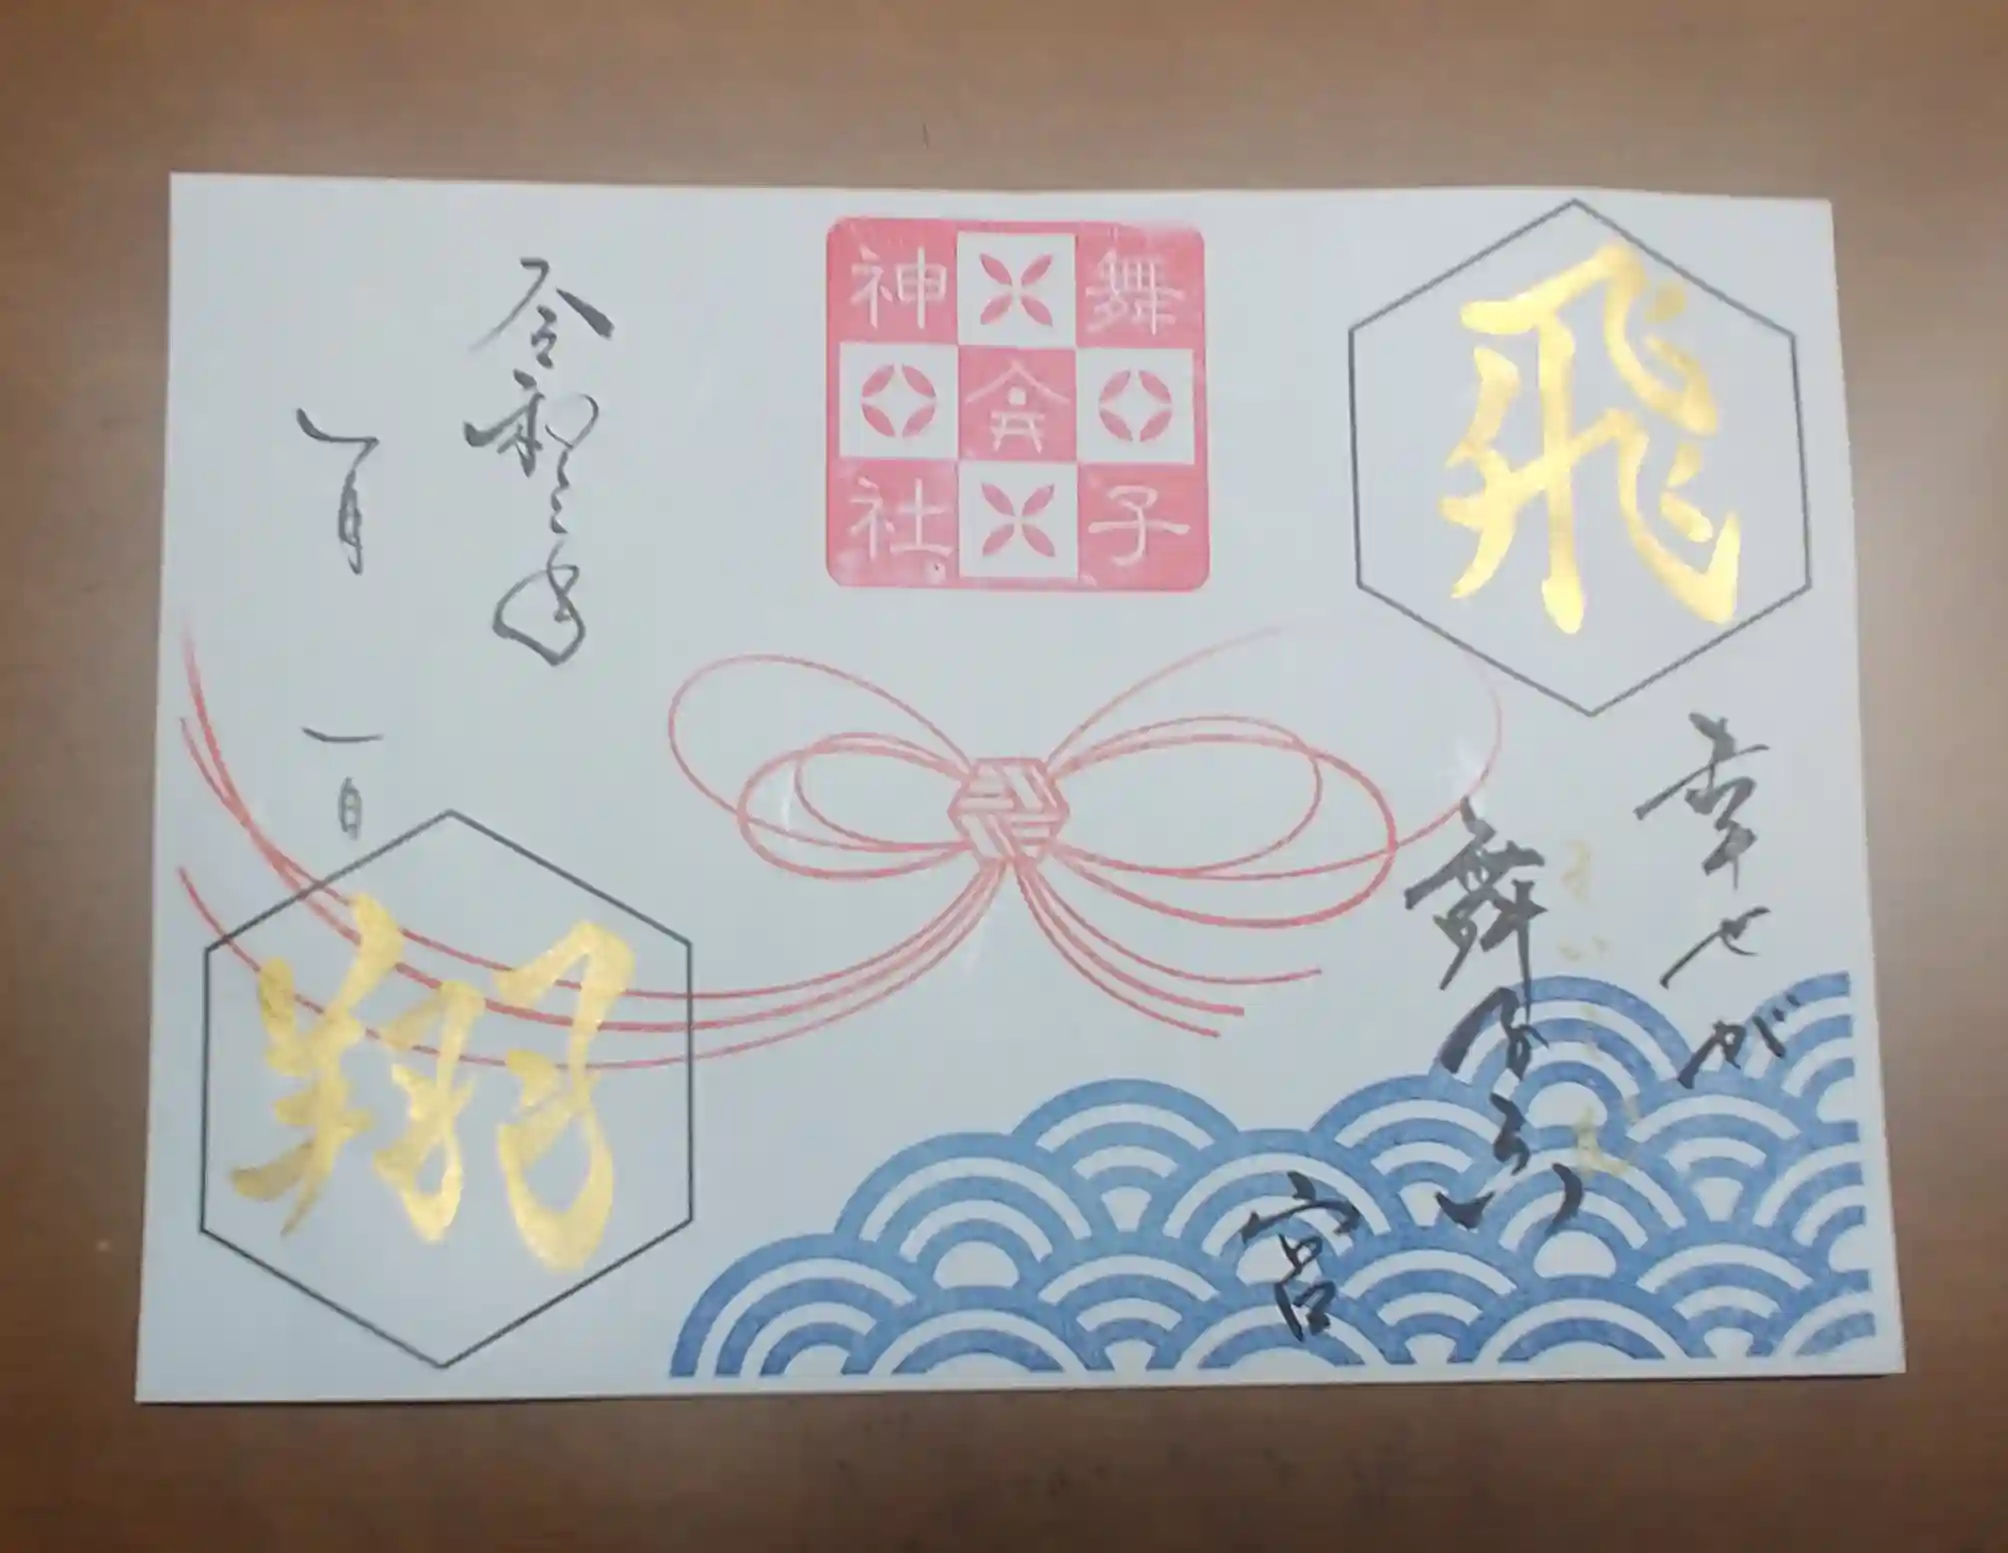 飛
幸せが
舞
宮
舞子
神社
令和三年
一月
一日
翔